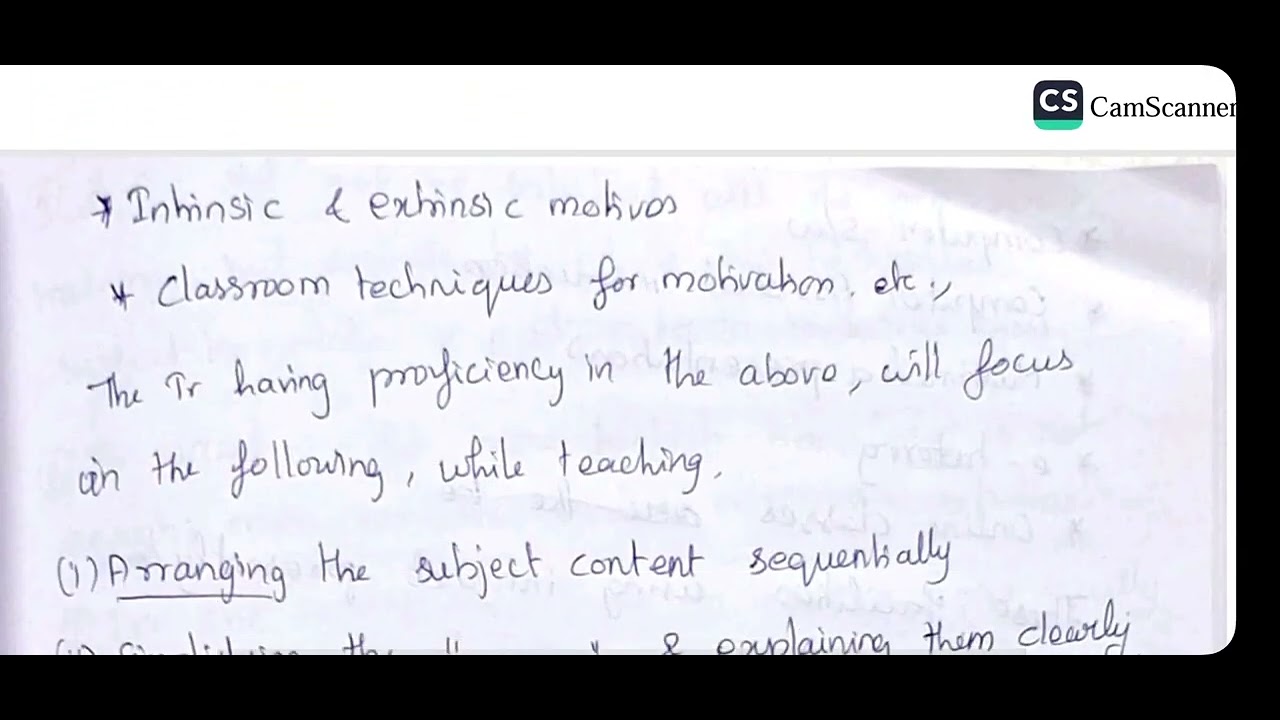 CS CamScanner
* Intrinsic & extrinsic motives
* Classroom techniques for motivation. etc.,
The Tr having proficiency in the above, will focus
in the following, while teaching.
(i) Arranging the subject content sequentially
the " " & explaining them clearly